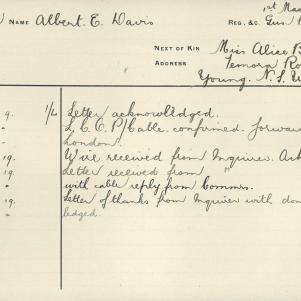 1st Mac
NAME Albert E. Davis REG. &C. Gns.
NEXT OF KIN Miss Alice B
ADDRESS Temora Ro
Young. N.S.W
9. 1/L Letter acknowledged.
" L.C.O.P/Cable. confirmed. Forward
" London.
19. Wire received from Inquirer. Ask
19. Letter received from "
" with cable reply from Commrs.
19. Letter of thanks from Inquirer with don
" ledged.